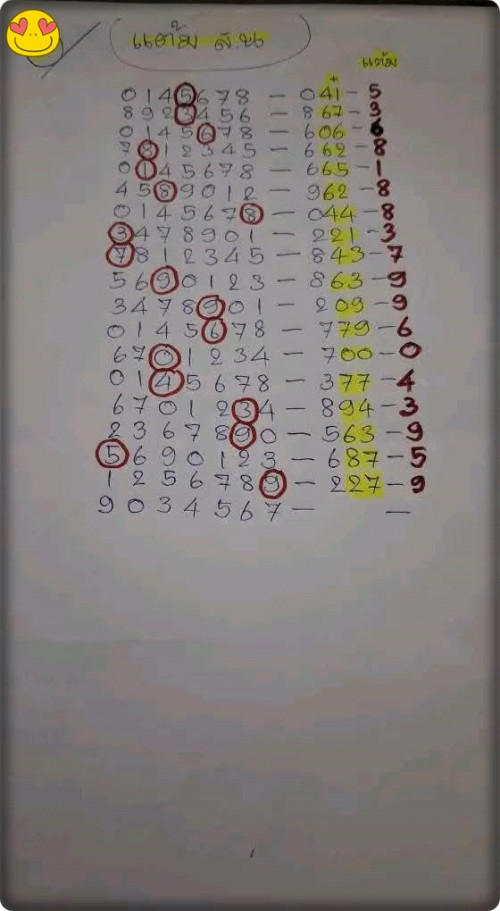 แต้ม ส.น
แต้ม
+
0145678 - 041 - 5
8923456 - 867 - 3
0145678 - 606 - 6
7912345 - 662 - 8
0145678 - 665 - 1
4589012 - 962 - 8
0145678 - 044 - 8
3478901 - 221 - 3
7812345 - 843 - 7
5690123 - 863 - 9
3478901 - 209 - 9
0145678 - 779 - 6
6701234 - 700 - 0
0145678 - 377 - 4
6701234 - 894 - 3
2367890 - 563 - 9
5690123 - 687 - 5
1256789 - 227 - 9
9034567 - -